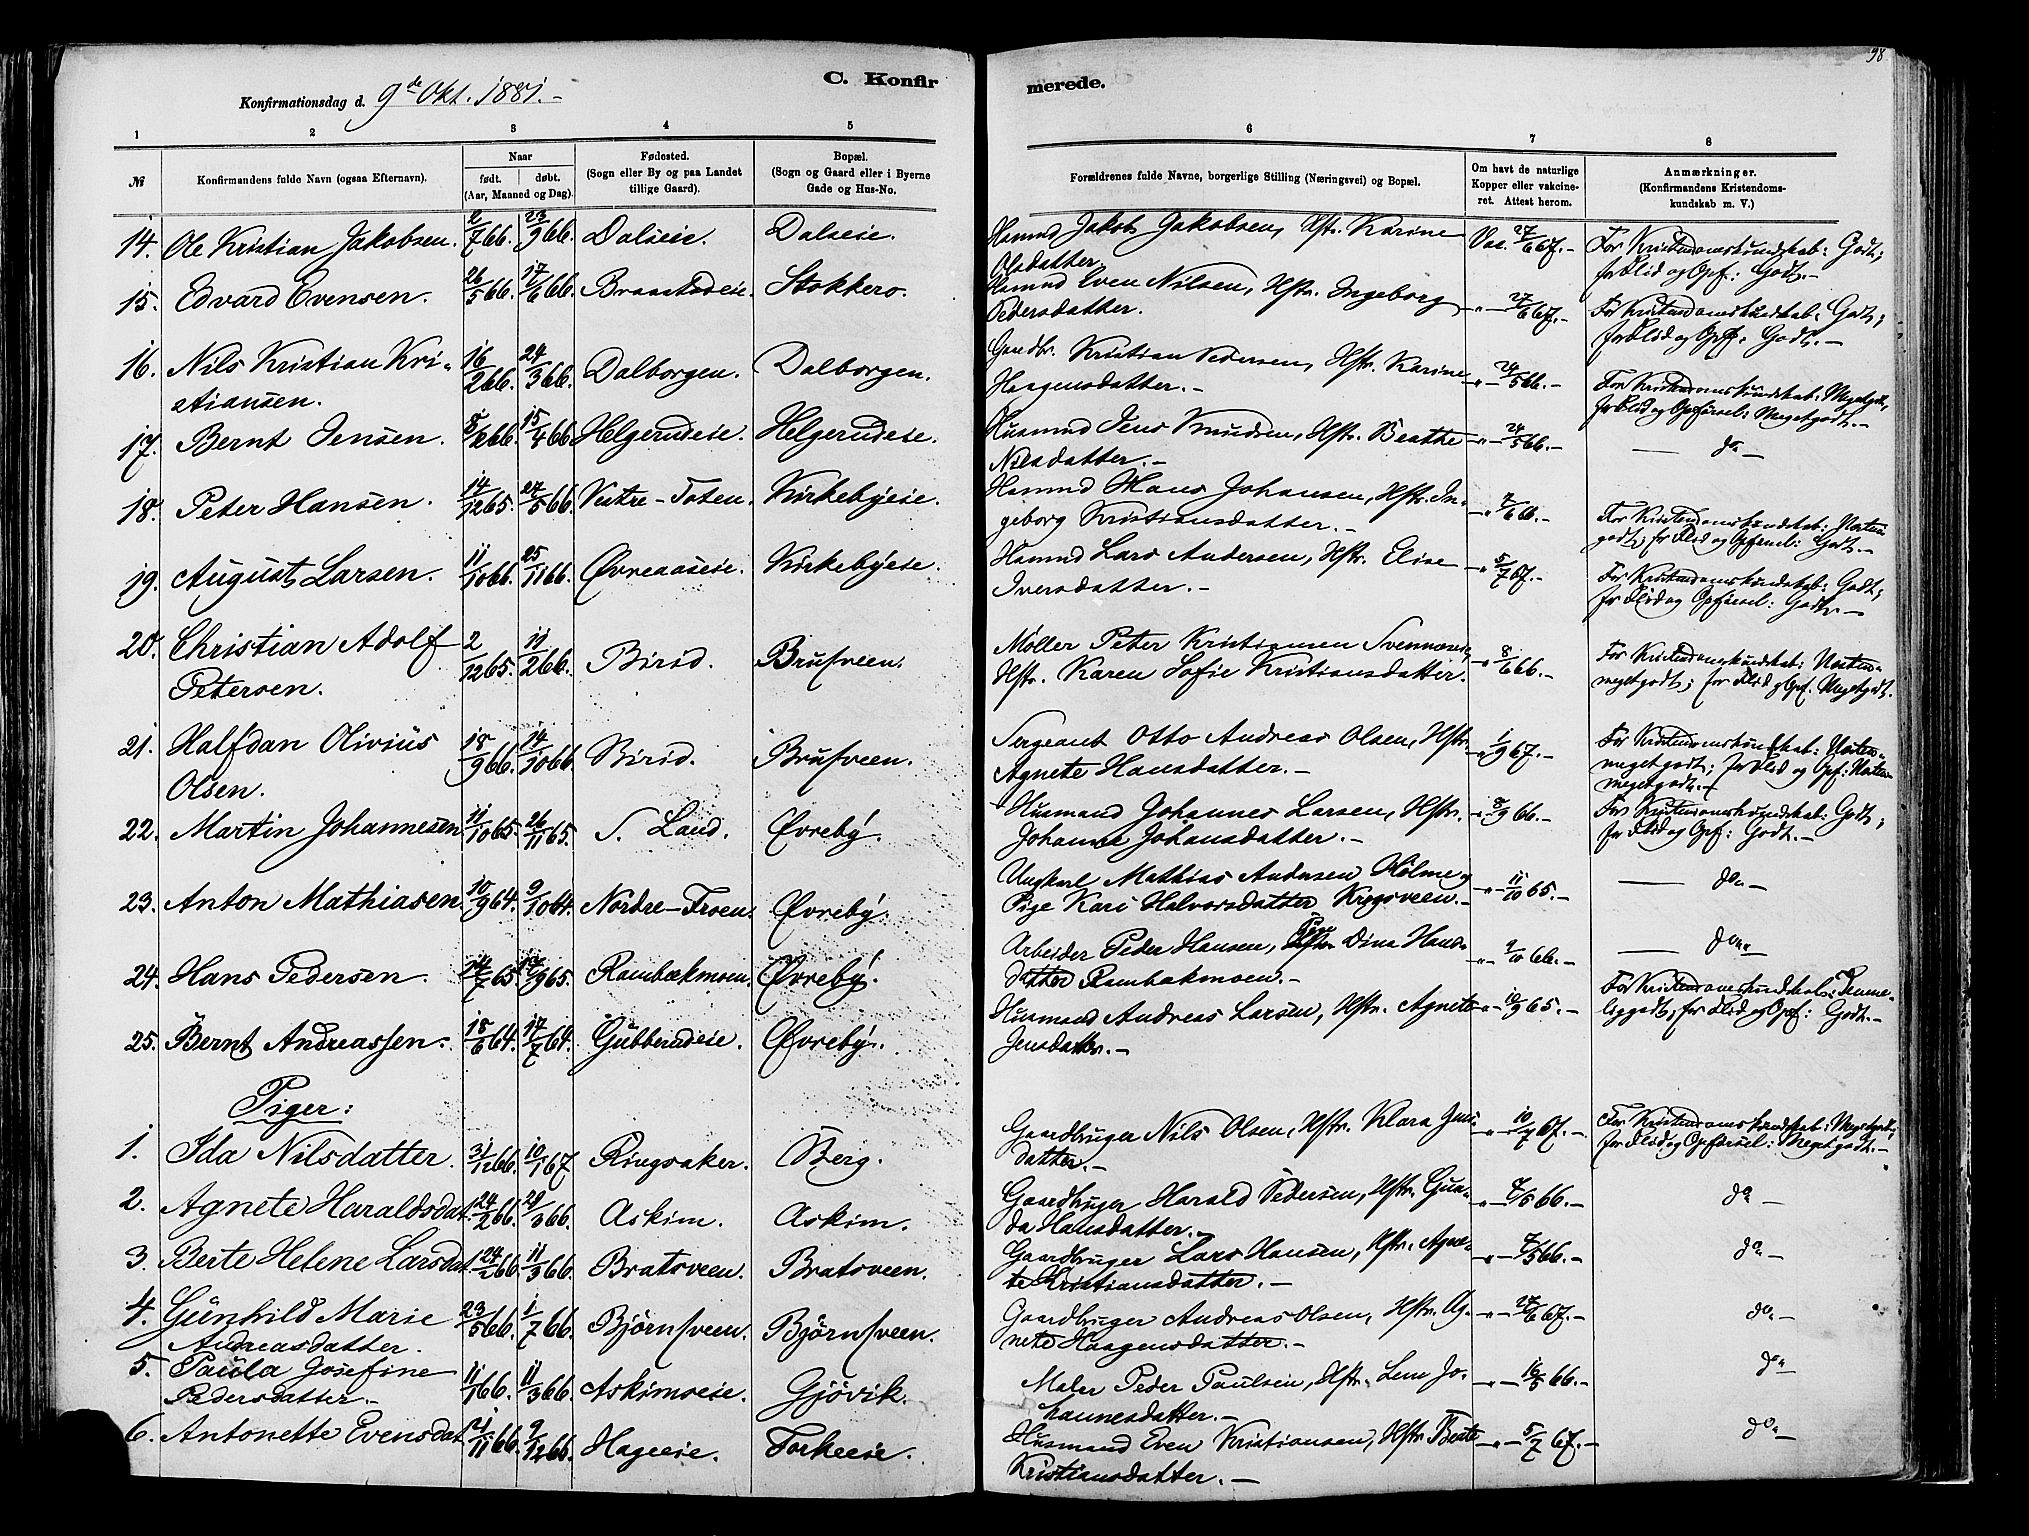 98
C. Konfir
merede.
Konfirmationsdag d. 9de Okt. 1881.-
1 2 3 4 5 6 7 8
№ Konfirmandens fulde Navn (ogsaa Efternavn).
Naar
født. døbt.
(Aar, Maaned og Dag).
Fødested.
(Sogn eller By og paa Landet
tillige Gaard).
Bopæl.
(Sogn og Gaard eller i Byerne
Gade og Hus-No.
Forældrenes fulde Navne, borgerlige Stilling (Næringsvei) og Bopæl.
Om havt de naturlige
Kopper eller vakcine-
ret. Attest herom.
Anmærkninger.
(Konfirmandens Kristendoms-
kundskab m. V.)
14. Ole Kristian Jakobsen. 2/7 66. 23/9 66. Dalseie. Dalseie. Husmd Jakob Jakobsen, Hstr. Karine Vac. 27/6 67.- For Kristendomskundskab: Godt;
Olsdatter. for Flid og Opf: Godt.-
15. Edvard Evensen. 26/5 66. 17/6 66. Braastadeie. Stokkero. Husmd Even Nilsen, Hstr. Ingeborg -"- 27/6 67.- For Kristendomskundskab: Godt;
Pedersdatter. for Flid og Opf: Godt.-
16. Nils Kristian Kri- 16/2 66. 24/3 66. Dalborgen. Dalborgen. Gaardbr. Kristian Pedersen, Hstr. Karine -"- 24/5 66.- For Kristendomskundskab: Megetgodt,
stiansen. Haagensdatter.- for Flid og Opførsel: Megetgodt.-
17. Bernt Jensen. 8/2 66. 15/4 66. Helgerudeie. Helgerudeie. Husmnd Jens Knudsen, Hstr. Beathe -"- 24/5 66.- do -
Nilsdatter.-
18. Peter Hansen. 14/12 65. 22/5 66. Vestre-Toten. Kirkebyeie. Husmd Hans Johansen, Hstr. In- -"- 7/6 66.- For Kristendomskundskab: Næsten
geborg Kristiansdatter.- godt; for Flid og Opførsel: Godt.-
19. August Larsen. 11/10 66. 25/11 66. Øvreaaseie. Kirkebyeie. Husmd Lars Andersen, Hstr. Elise -"- 5/7 67.- For Kristendomskundskab: Godt;
Iversdatter.- for Flid og Opførsel: Godt.-
20. Christian Adolf 2/12 65. 11/2 66. Birid. Brufveen. Møller Peter Kristiansen Svennæs, -"- 8/6 66.- For Kristendomskundskab: Næsten-
Petersen. Hstr. Karen Sofie Kristiansdatter. megetgodt; for Flid og Opf. Megetgodt.
21. Halfdan Olivius 18/9 66. 14/10 66. Birid. Brufveen. Sergeant Otto Andreas Olsen, Hstr. -"- 1/9 67.- For Kristendomskundskab: Næsten-
Olsen. Agnete Hansdatter.- megetgodt; for Flid og Opf: Næsten
megetgodt.-
22. Martin Johannesen 11/10 65. 26/11 65. S. Land. Øvreby. Husmand Johannes Larsen, Hstr. -"- 8/9 66.- For Kristendomskundskab: Godt;
Johanna Johansdatter.- for Flid og Opf: Godt.-
23. Anton Mathiasen 10/9 64. 9/10 64. Nordre-Froen. Øvreby. Ungkarl Mathias Andersen Holme og -"- 11/10 65.- do -
Pige Kari Halvorsdatter Krogsveen.-
24. Hans Pedersen. 14/7 65. 17/9 65. Rambækmoen. Øvreby. Arbeider Peder Hansen, Pige Dina Hans- -"- 9/10 66.- do -
datter Rambækmoen.-
25. Bernt Andreassen. 18/6 64. 17/7 64. Gubberudeie. Øvreby. Husmand Andreas Larsen, Hstr. Agnete -"- 10/9 65.- For Kristendomskundskab: Temme-
Jensdatter.- liggodt, for Flid og Opf: Godt.-
Piger:
1. Ida Nilsdatter. 31/12 66. 10/1 67 Ringsaker. Berg. Gaardbruger Nils Olsen, Hstr. Klara Jens- -"- 10/7 67.- For Kristendomskundskab: Megetgodt,
datter.- for Flid og Opførsel: Megetgodt.-
2. Agnete Haraldsdat. 24/2 66. 20/3 66. Askim. Askim. Gaardbruger Harald Pedersen, Hstr. Gun- -"- 7/6 66.- do -
da Hansdatter.-
3. Berte Helene Larsdat. 24/2 66. 11/3 66. Bratsveen. Bratsveen. Gaardbruger Lars Hansen, Hstr. Agne- -"- 7/5 66.- do -
te Kristiansdatter.-
4. Gunhild Marie 23/5 66. 1/7 66. Bjørnsveen. Bjørnsveen. Gaardbruger Andreas Olsen, Hstr. Ag- -"- 27/6 67.- do -
Andreasdatter. nete Haagensdatter.-
5. Paula Josefine 11/1 66. 11/3 66. Askimseie. Gjøvik. Maler Peder Paulsen, Hstr. Lena Jo- -"- 16/5 66.- do -
Pedersdatter.- hannesdatter.-
6. Antonette Evensdat. 21/11 66. 9/12 66. Hageeie. Torkeeie. Husmand Even Kristiansen, Hstr Beate -"- 5/7 67.- do -
Kristiansdatter.-